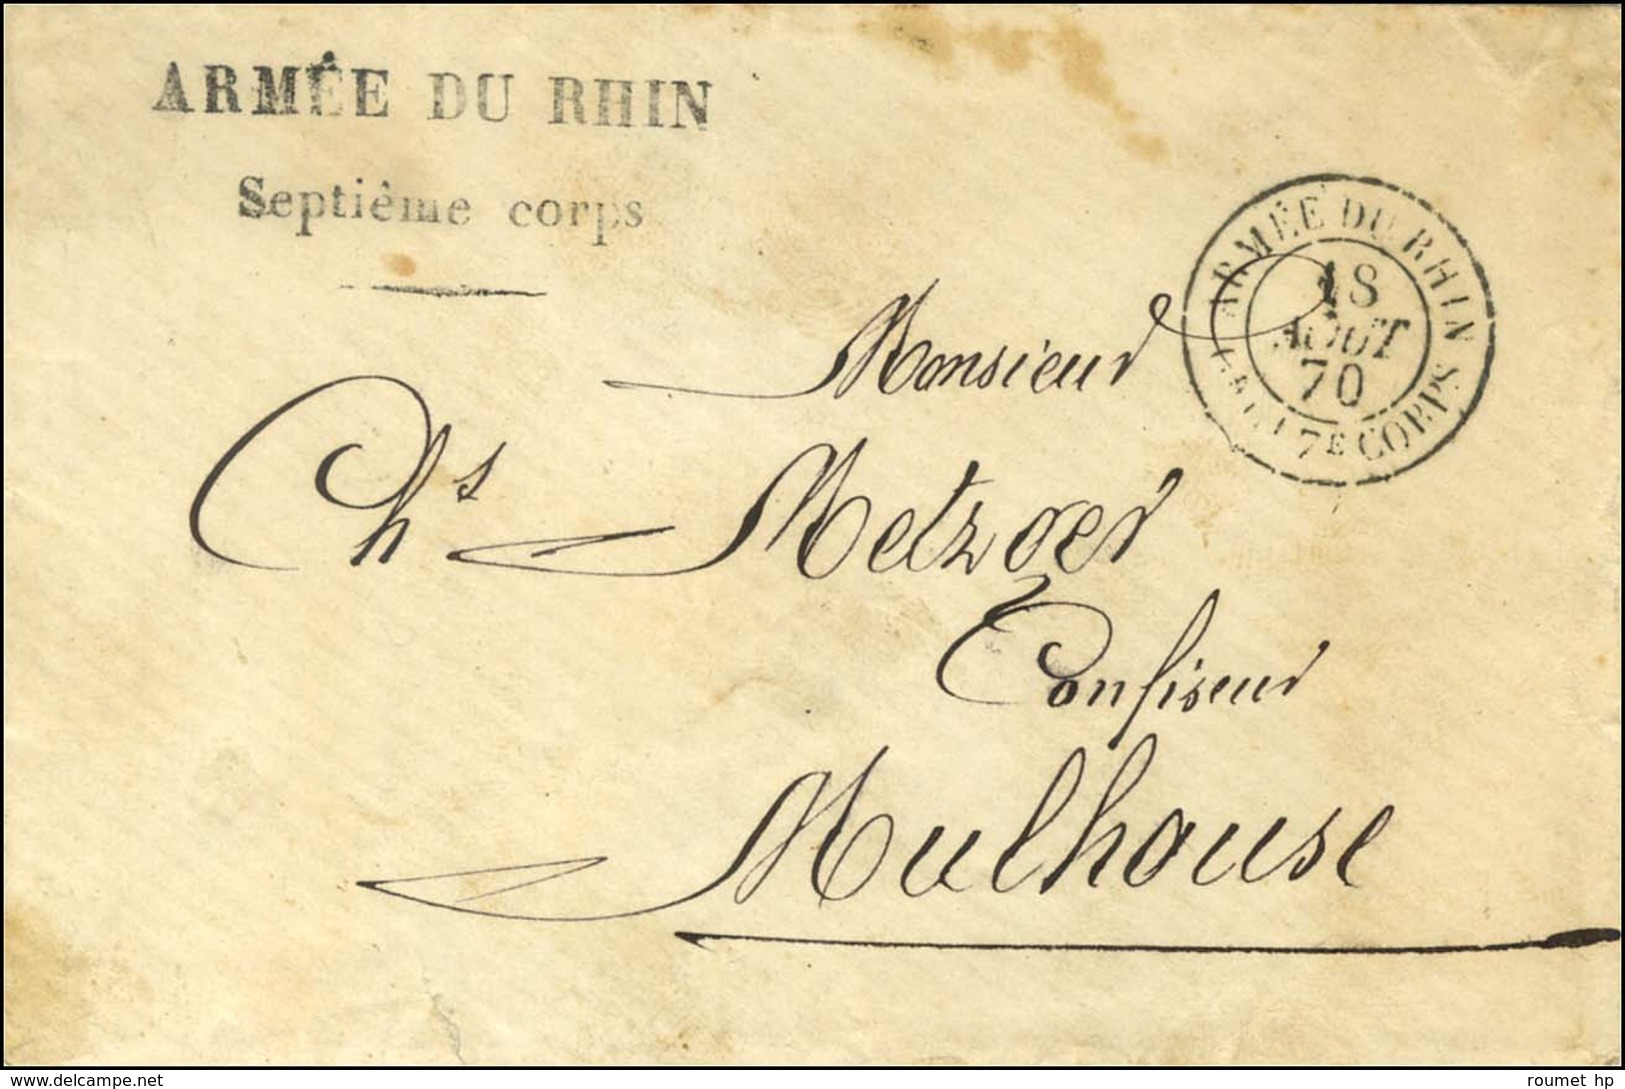 ARMÉE DU RHIN
Septième corps
ARMÉE DU RHIN
18
AOUT
70
7E CORPS
Monsieur
Chs Metzger
Confiseur
Mulhouse
delcampe.net
roumet hp